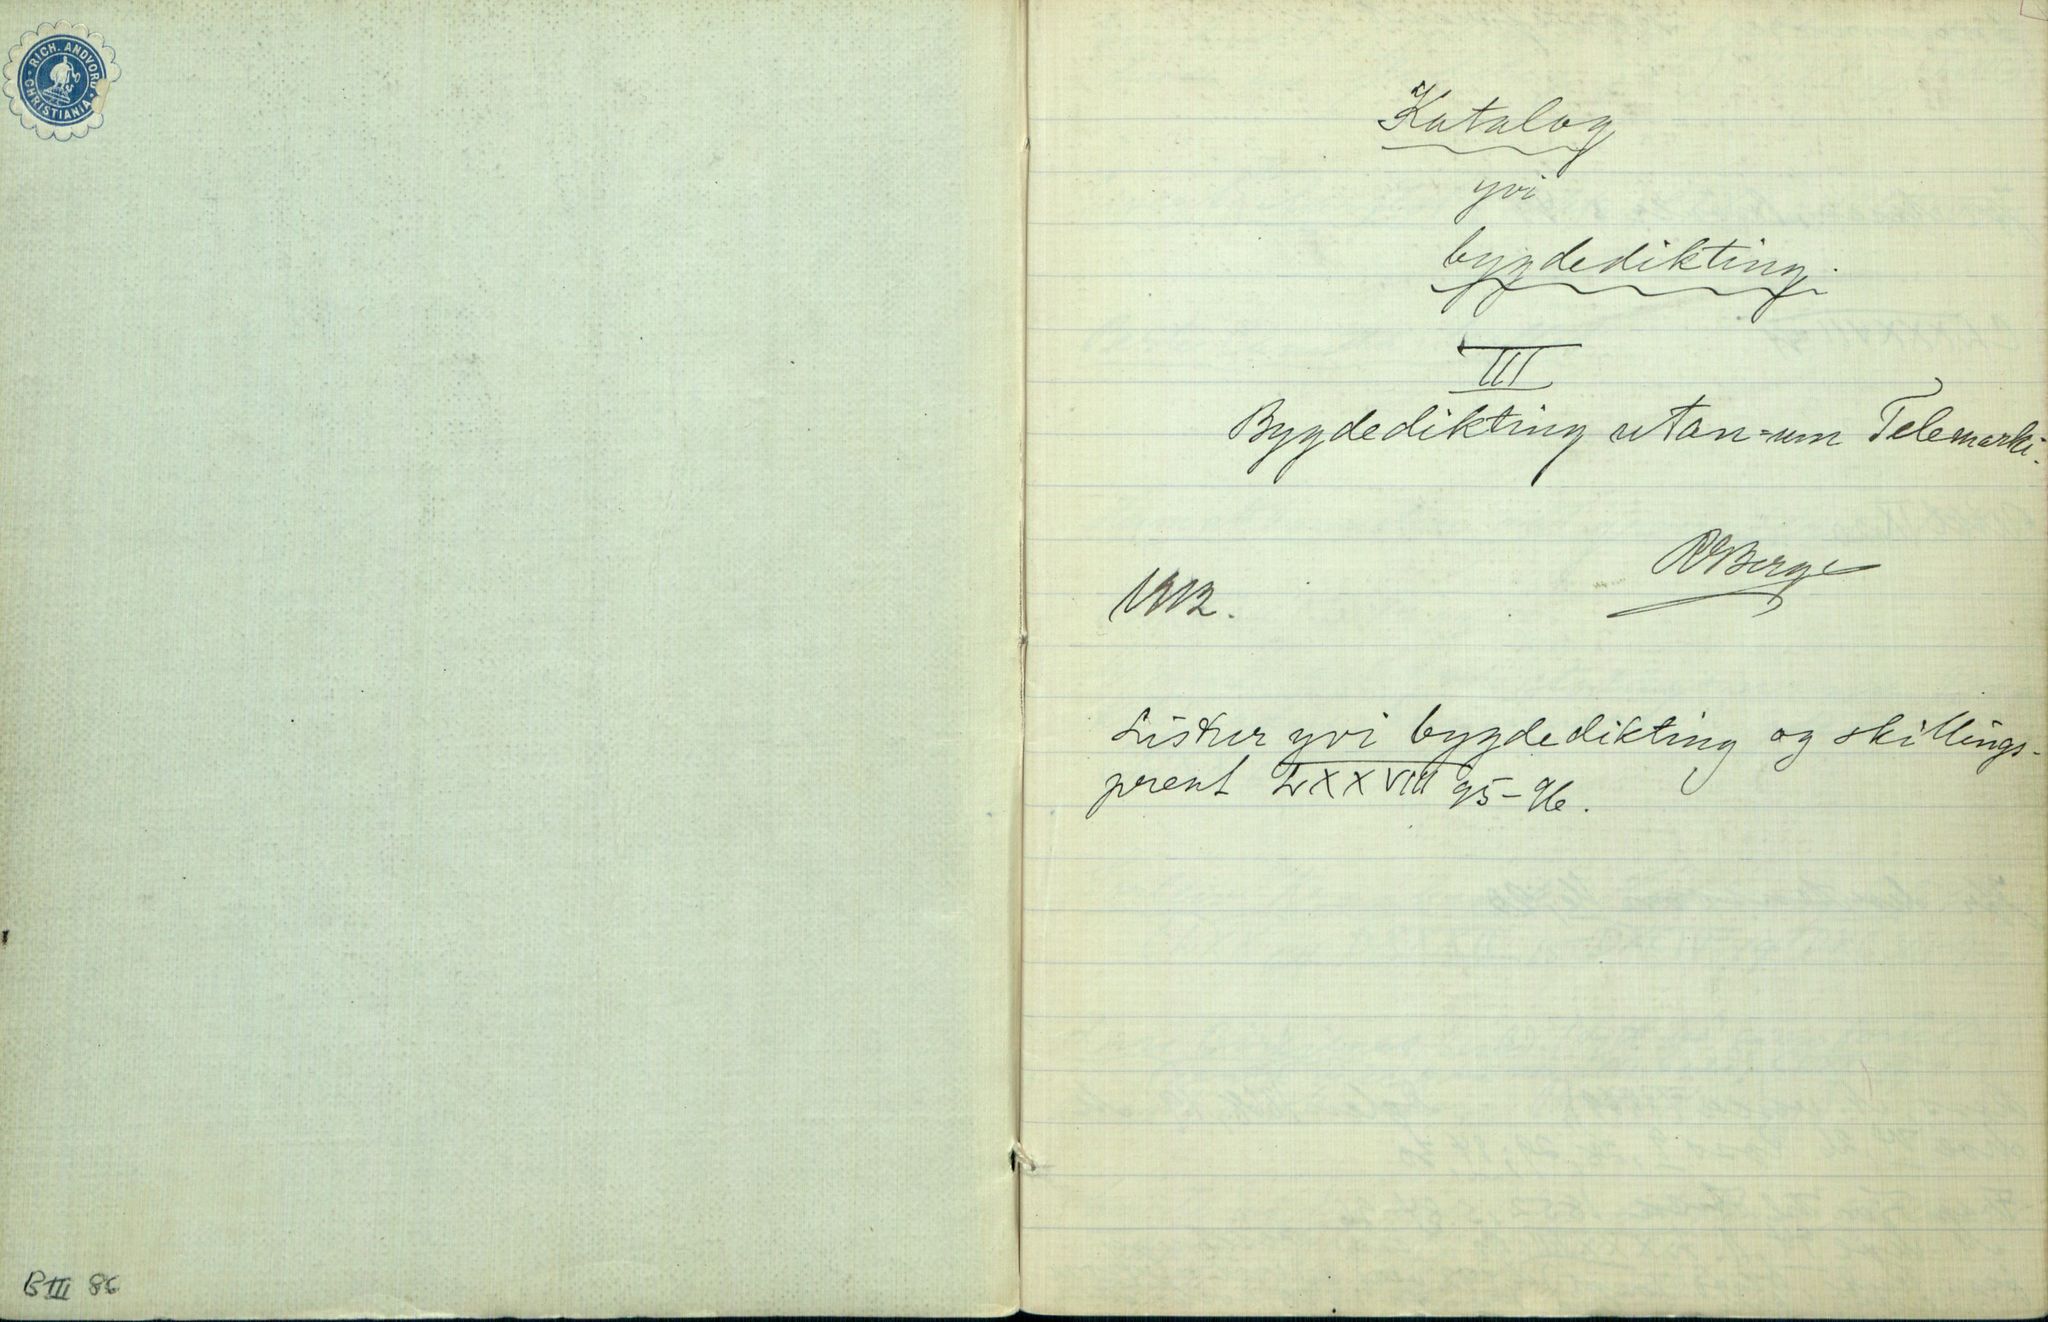 RICH. ANDVORD
CHRISTIANIA
B III 86
Katalog
yvi
bygdedikting.
III
Bygdedikting utan-um Telemarki.
RBerge
1912.
Lister yvi bygdedikting og skillings-
prent LXXVIII 95-96.